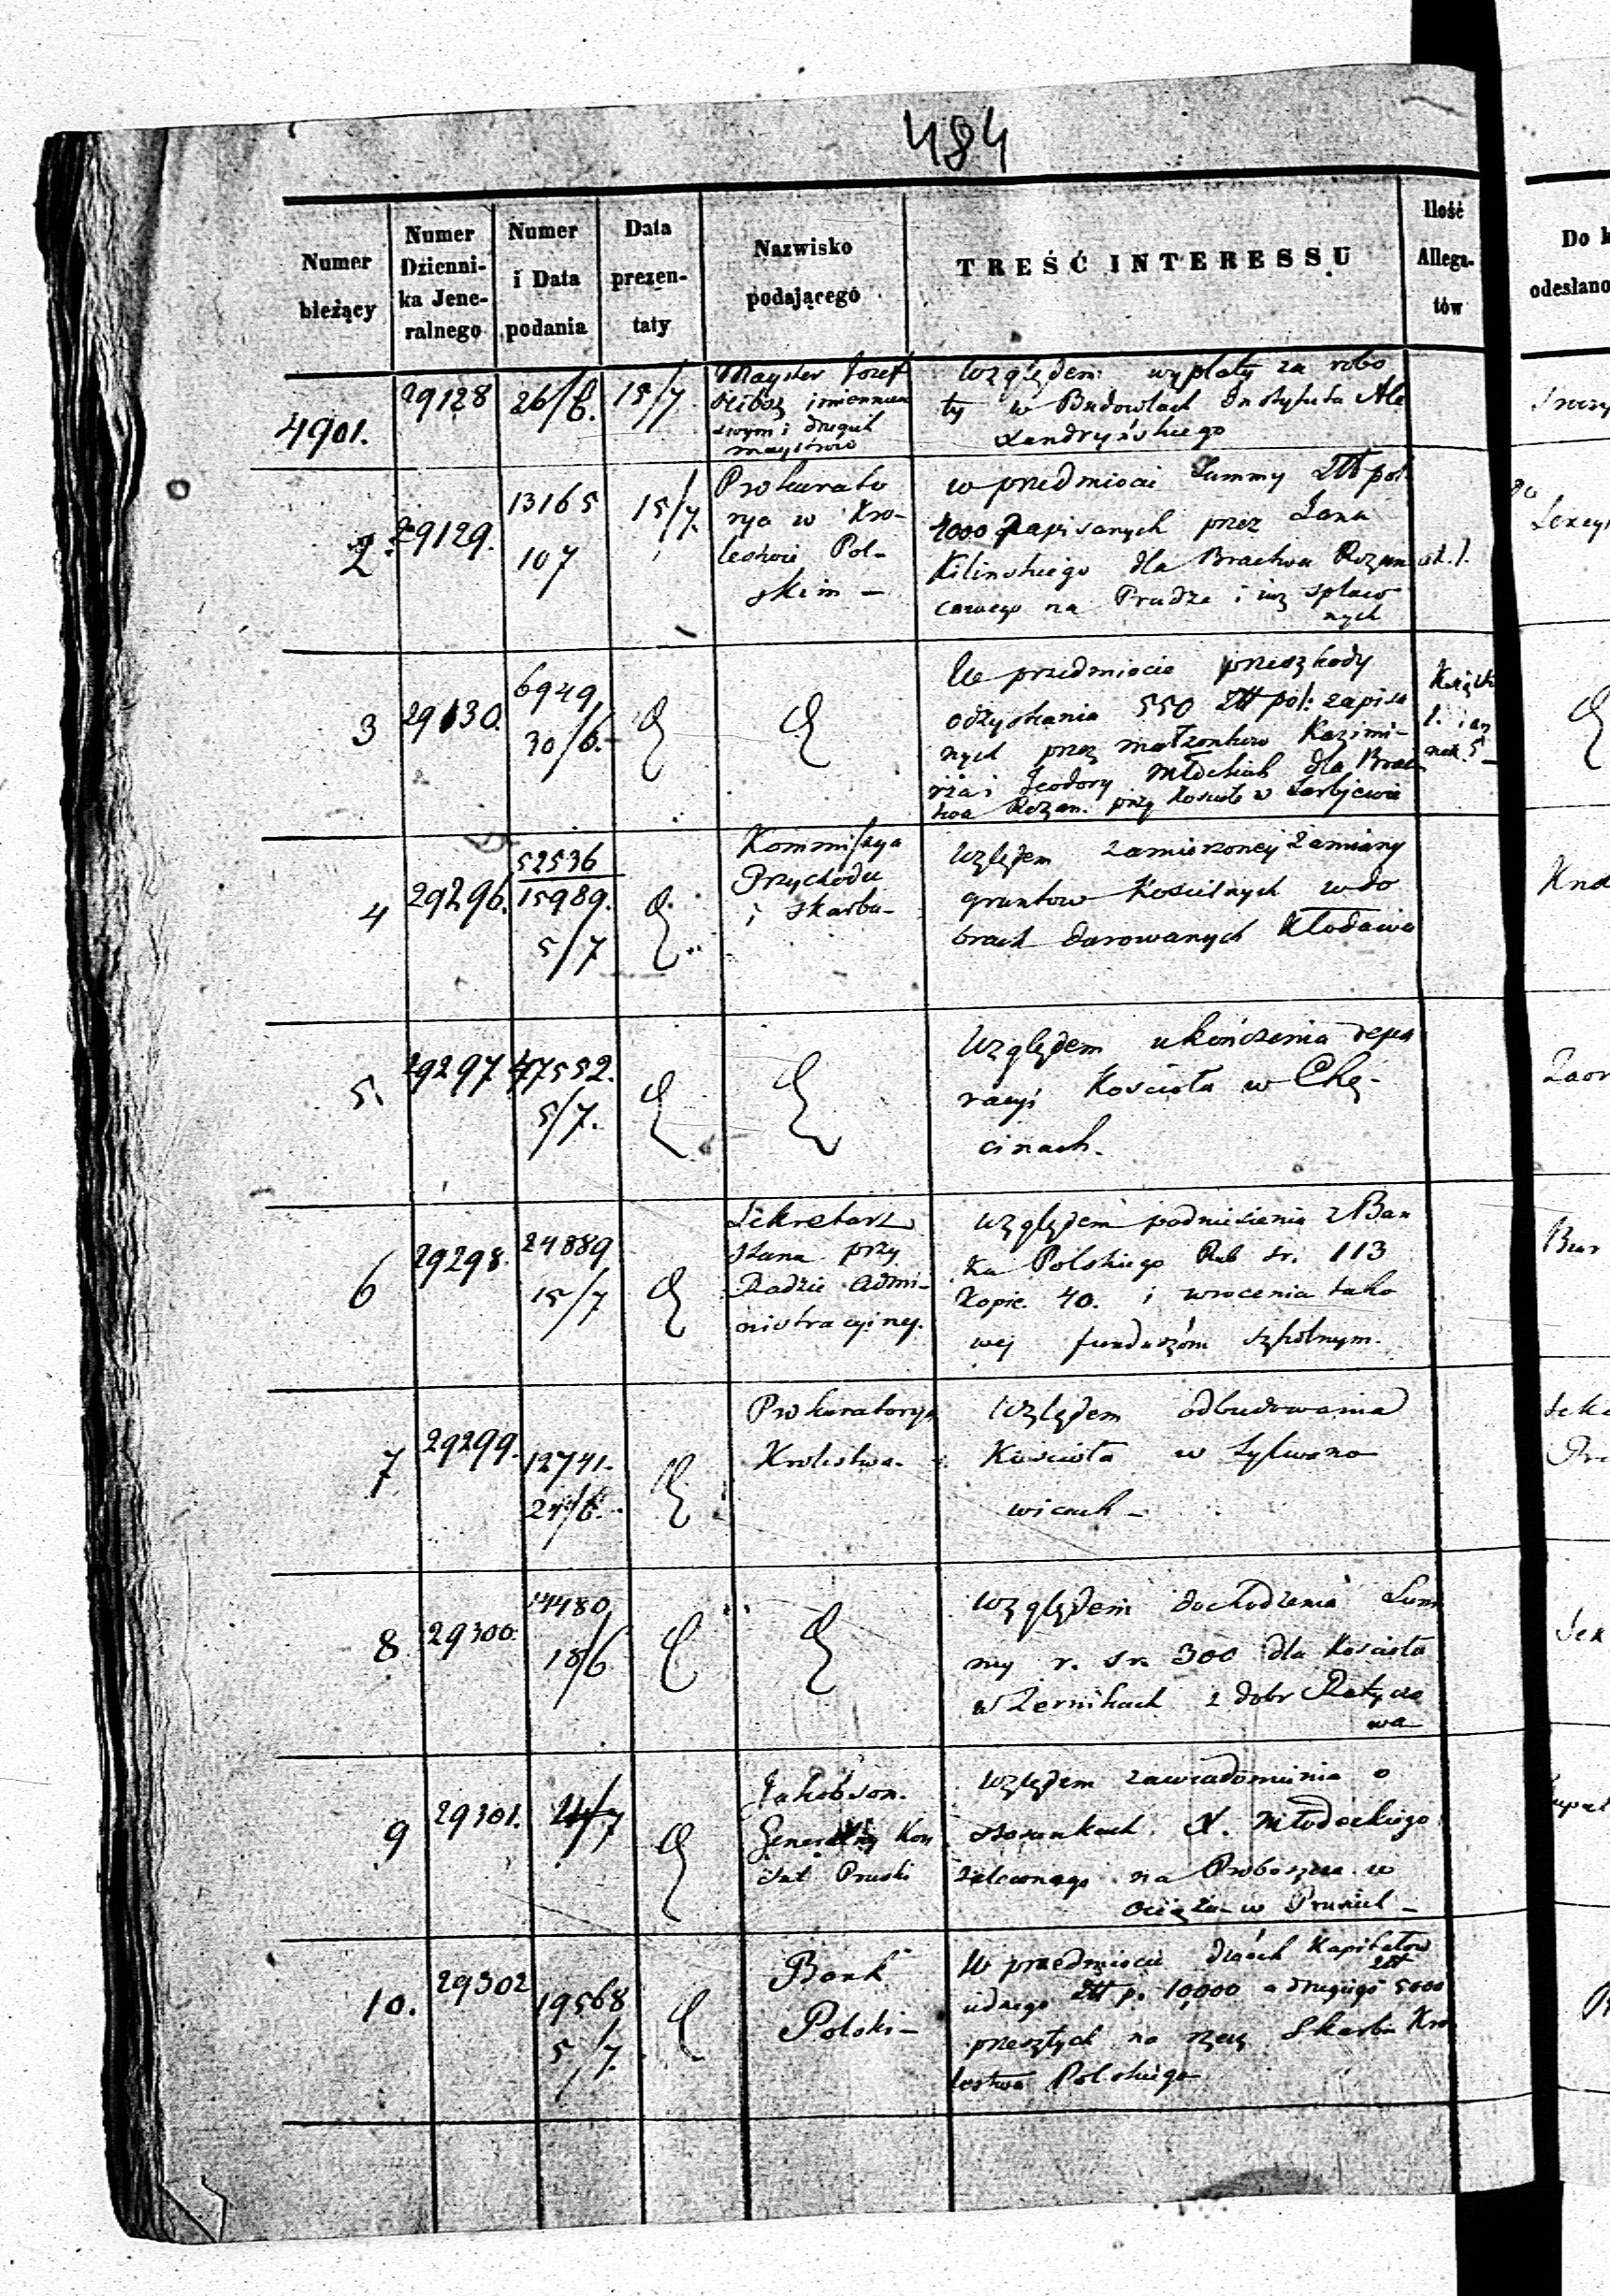 484
Numer bieżący
Numer Dzienni-ka Jene-ralnego
Numer i Data podania
Data prezen-taty
Nazwisko podającego
TREŚĆ INTERESSU
Ilość Allega-tów
Do k
odesłano
4901. 29128 26/6. 15/7
Mayster Jozef
imieniem
swym i drugich
maystrow
Względem wypłaty za robo
ty w Budowlach Instytutu Ale
xandryńskiego
2. 29129. 13165 107 15/7.
Prokurato
rya w Kro-
lestwie Pol-
skim -
w przedmiocie Summy Złł pol
4000 zapisanych przez Jana
Kilinskiego dla Bractwa Rozan
cowego na Pradze i
3 29130. 6949 30/6.
We przedmiocie przeszkody
odzyskania 550 Złł pol: zapisa
nych przez małżonkow Kazimi-
rża i Teodory dla Brac
twa Rozan. przy Kosciele w
4 29296. 52536 15989. 5/7
Kommissya
Przychodu
i Skarbu-
Względem zamierzoney zamiany
gruntow Kościelnych w do
brach darowanych Kłodawa
5. 29297 47552. 5/7.
Względem ukończenia repa
racyi Kościoła w Chę-
cinach.
6 29298. 24889 15/7
Sekretarz
Stanu przy
Radzie Admi-
nistracyjney.
Względem podniesienia z Ban
ku Polskiego Rub sr. 113
Kopie. 40. i wrocenia tako
wej funduszóm szkolnym.
7 29299. 12741. 24/6.
Prokuratorya
Krolestwa.
Względem odbudowania
Kościoła w Sylwano
wicach -
8 29300. 14480 18/6
Względem dochodzenia Sum
my r. sr. 300 dla Kościoła
w Zernikach z dobr
9 29301. 4/7
Jakobson.
Generalny Kon
sul Pruski
Względem zawiadomienia o
stosunkach X. Młodeckiego
zaleconego na Proboszcza w
w Prusiech -
10. 29302 19568 5/7.
Bank
Polski -
W przedmiocie dwoch Kapitałow
iednego Złł p. 10,000 a drugiego Złł 5000
przeszłych na rzecz Skarbu Kro
lestwa Polskiego